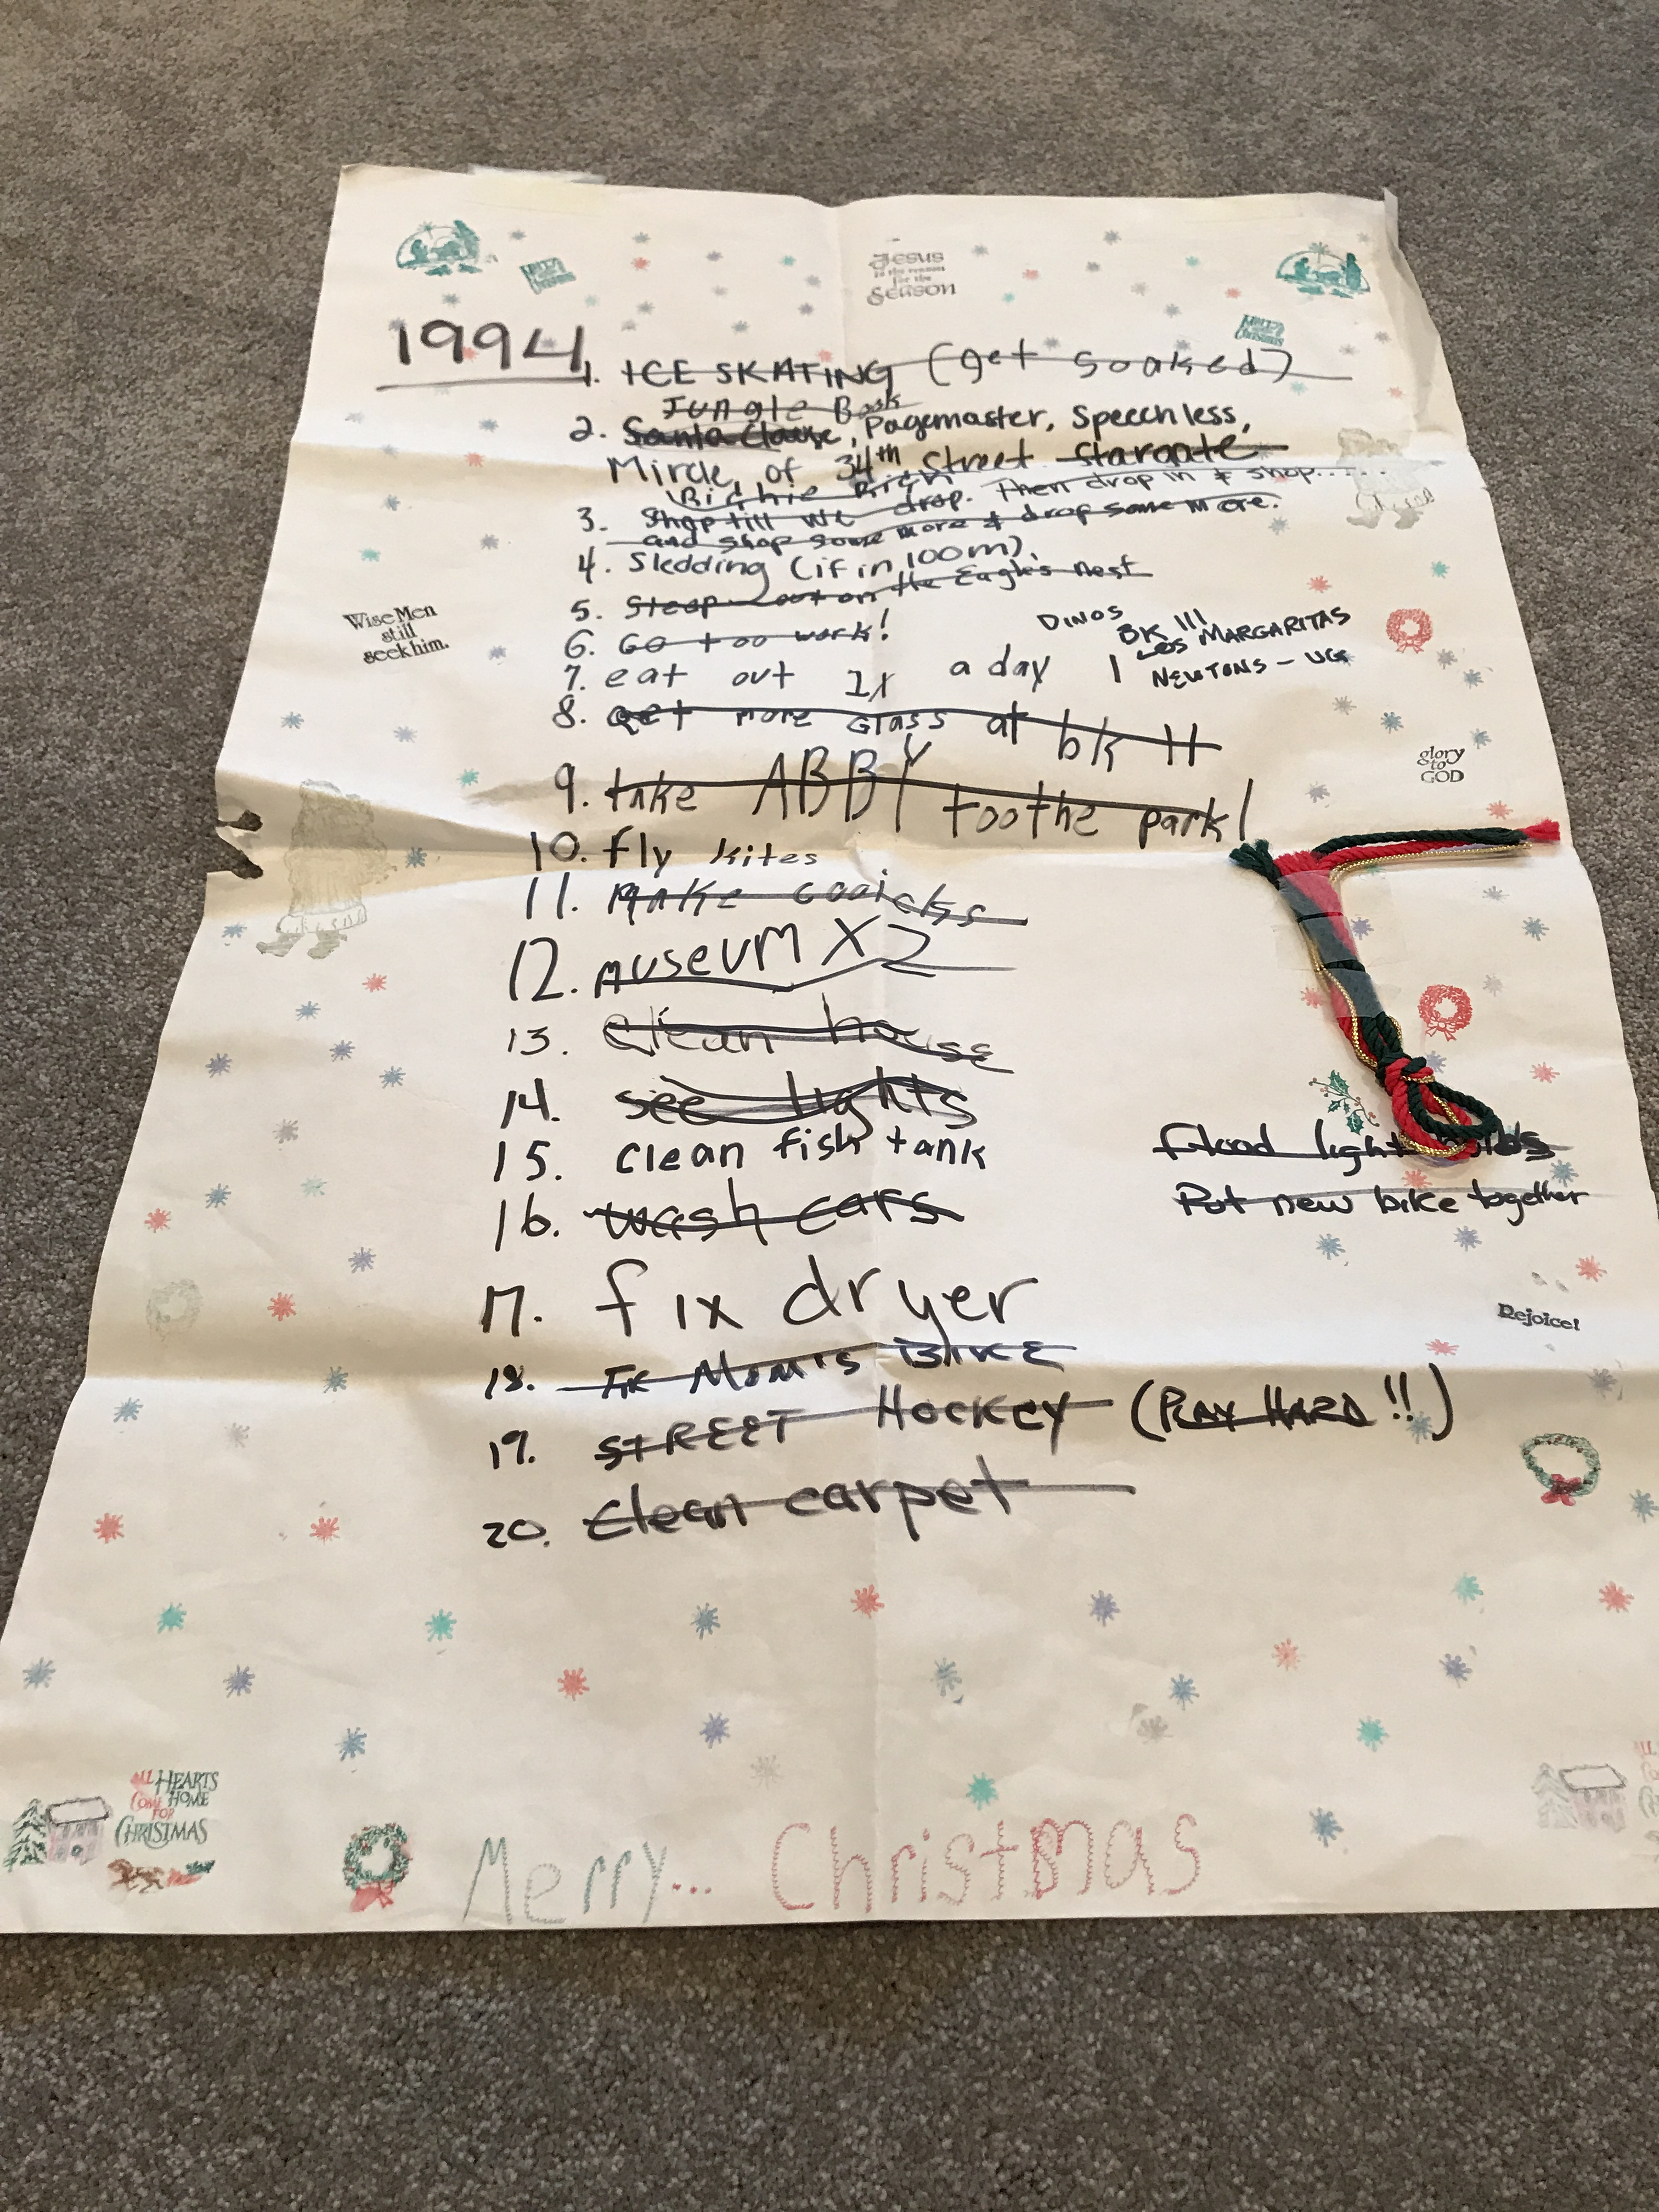 Jesus
is the reason
for the
Season
1994
1. ICE SKATING (get soaked)
Jungle Book
2. Santa Clause, Pagemaster, Speechless,
Mircle of 34th Street Stargate
Richie Rich
3. Shop till we drop. Then drop in & shop.....
and shop some more & drop some more.
4. Sledding (if in 100m).
5. Sleep out on the Eagle's nest
6. Go too work!
7. eat out 1x a day
DINOS
BK !!!
LOS MARGARITAS
NEWTONS - UG
8. get more Glass at bk
9. take ABBY toothe park!
10. fly kites
11. Make cooickss
12. MUSEUM X2
13. Clean house
14. see lights
15. clean fish tank
16. wash cars
17. fix dryer
18. Fix Mom's BIKE
19. STREET HOCKEY (PLAY HARD!!)
20. Clean carpet
Flood light
Put new bike together
Wise Men
still
seek him.
glory
to
GOD
Rejoice!
ALL HEARTS
COME HOME
FOR
CHRISTMAS
Merry... Christmas